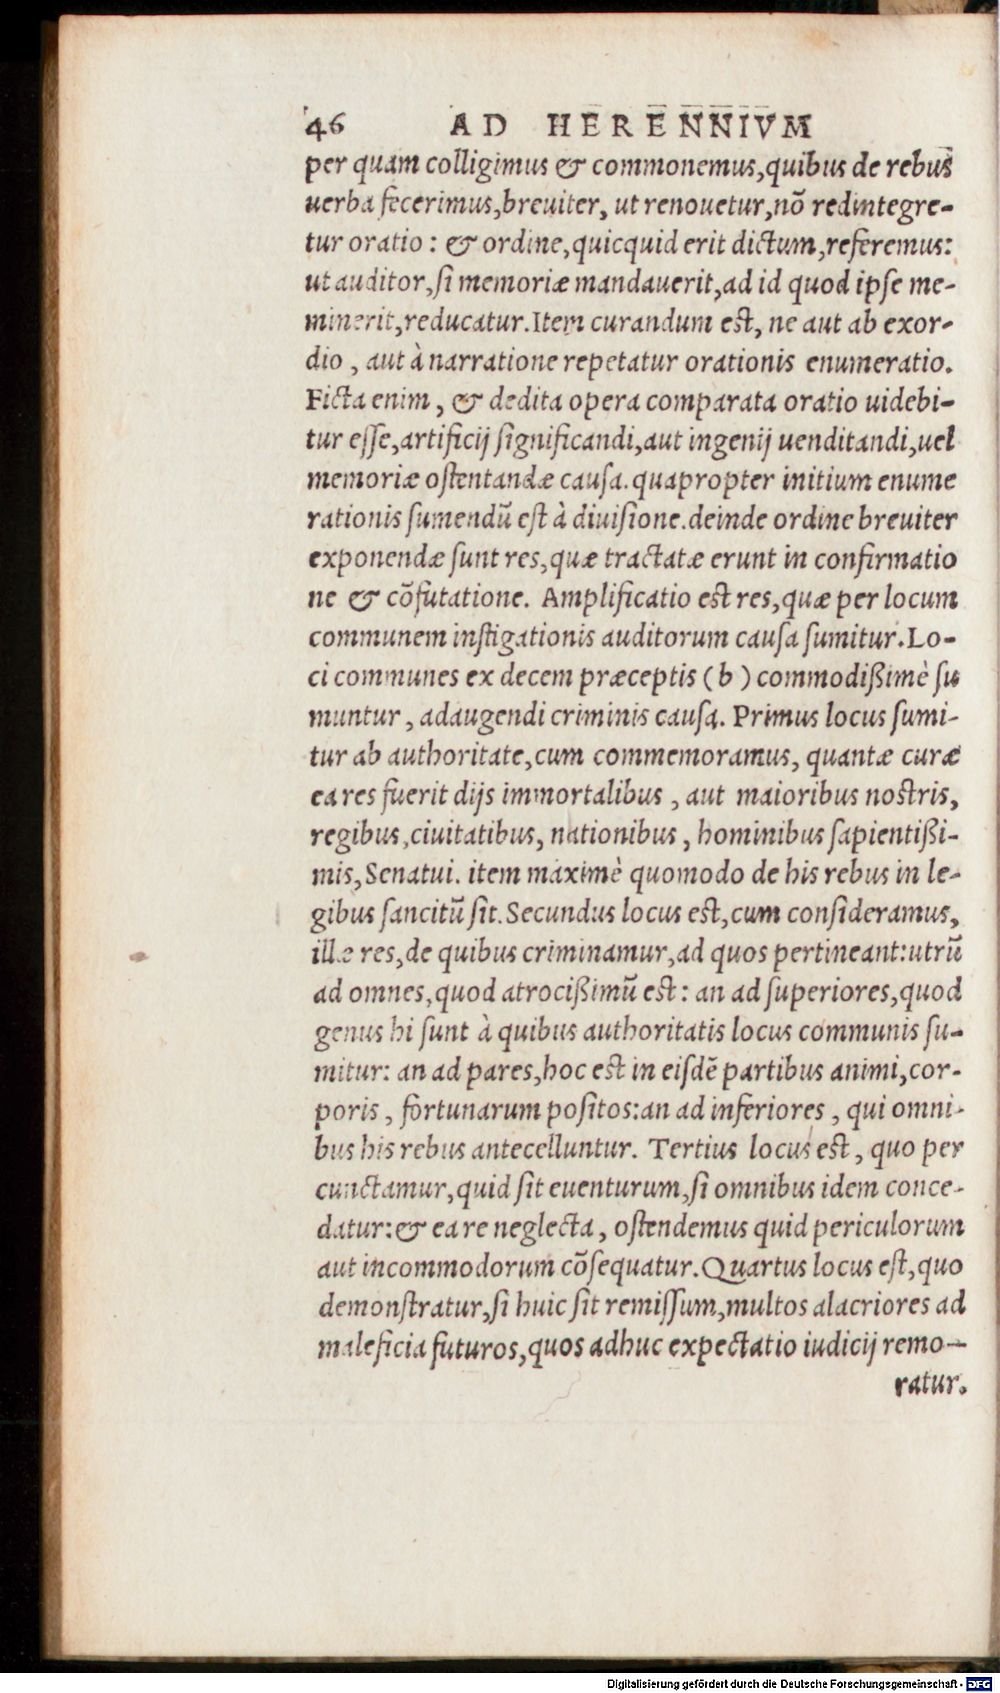 46 AD HERENNIVM
per quam colligimus & commonemus,quibus de rebus
uerba fecerimus,breuiter, ut renouetur,nõ redintegre-
tur oratio : & ordine,quicquid erit dictum,referemus:
ut auditor,ſi memoriæ mandauerit,ad id quod ipſe me-
minerit,reducatur.Item curandum est, ne aut ab exor-
dio , aut à narratione repetatur orationis enumeratio.
Ficta enim , & dedita opera comparata oratio uidebi-
tur eſſe,artificij ſignificandi,aut ingenij uenditandi,uel
memoriæ oſtentandæ cauſa.quapropter initium enume
rationis ſumendũ eſt à diuiſione.deinde ordine breuiter
exponendæ ſunt res,quæ tractatæ erunt in confirmatio
ne & cõfutatione. Amplificatio est res,quæ per locum
communem inſtigationis auditorum cauſa ſumitur.Lo-
ci communes ex decem præceptis ( b ) commodißimè ſu
muntur , adaugendi criminis cauſa. Primus locus ſumi-
tur ab authoritate,cum commemoramus, quantæ curæ
ea res fuerit dijs immortalibus , aut maioribus nostris,
regibus,ciuitatibus, nationibus , hominibus ſapientißi-
mis,Senatui. item maximè quomodo de his rebus in le-
gibus ſancitũ ſit.Secundus locus est,cum conſideramus,
illæ res,de quibus criminamur,ad quos pertineant:utrũ
ad omnes,quod atrocißimũ est : an ad ſuperiores,quod
genus hi ſunt à quibus authoritatis locus communis ſu-
mitur: an ad pares,hoc est in eiſdẽ partibus animi,cor-
poris , fortunarum poſitos:an ad inferiores , qui omni-
bus his rebus antecelluntur. Tertius locus est , quo per
cunctamur,quid ſit euenturum,ſi omnibus idem conce-
datur:& ea re neglecta , oſtendemus quid periculorum
aut incommodorum cõſequatur.Quartus locus eſt,quo
demonſtratur,ſi huic ſit remiſſum,multos alacriores ad
maleficia futuros,quos adhuc expectatio iudicij remo-
ratur.
Digitalisierung gefördert durch die Deutsche Forschungsgemeinschaft - DFG